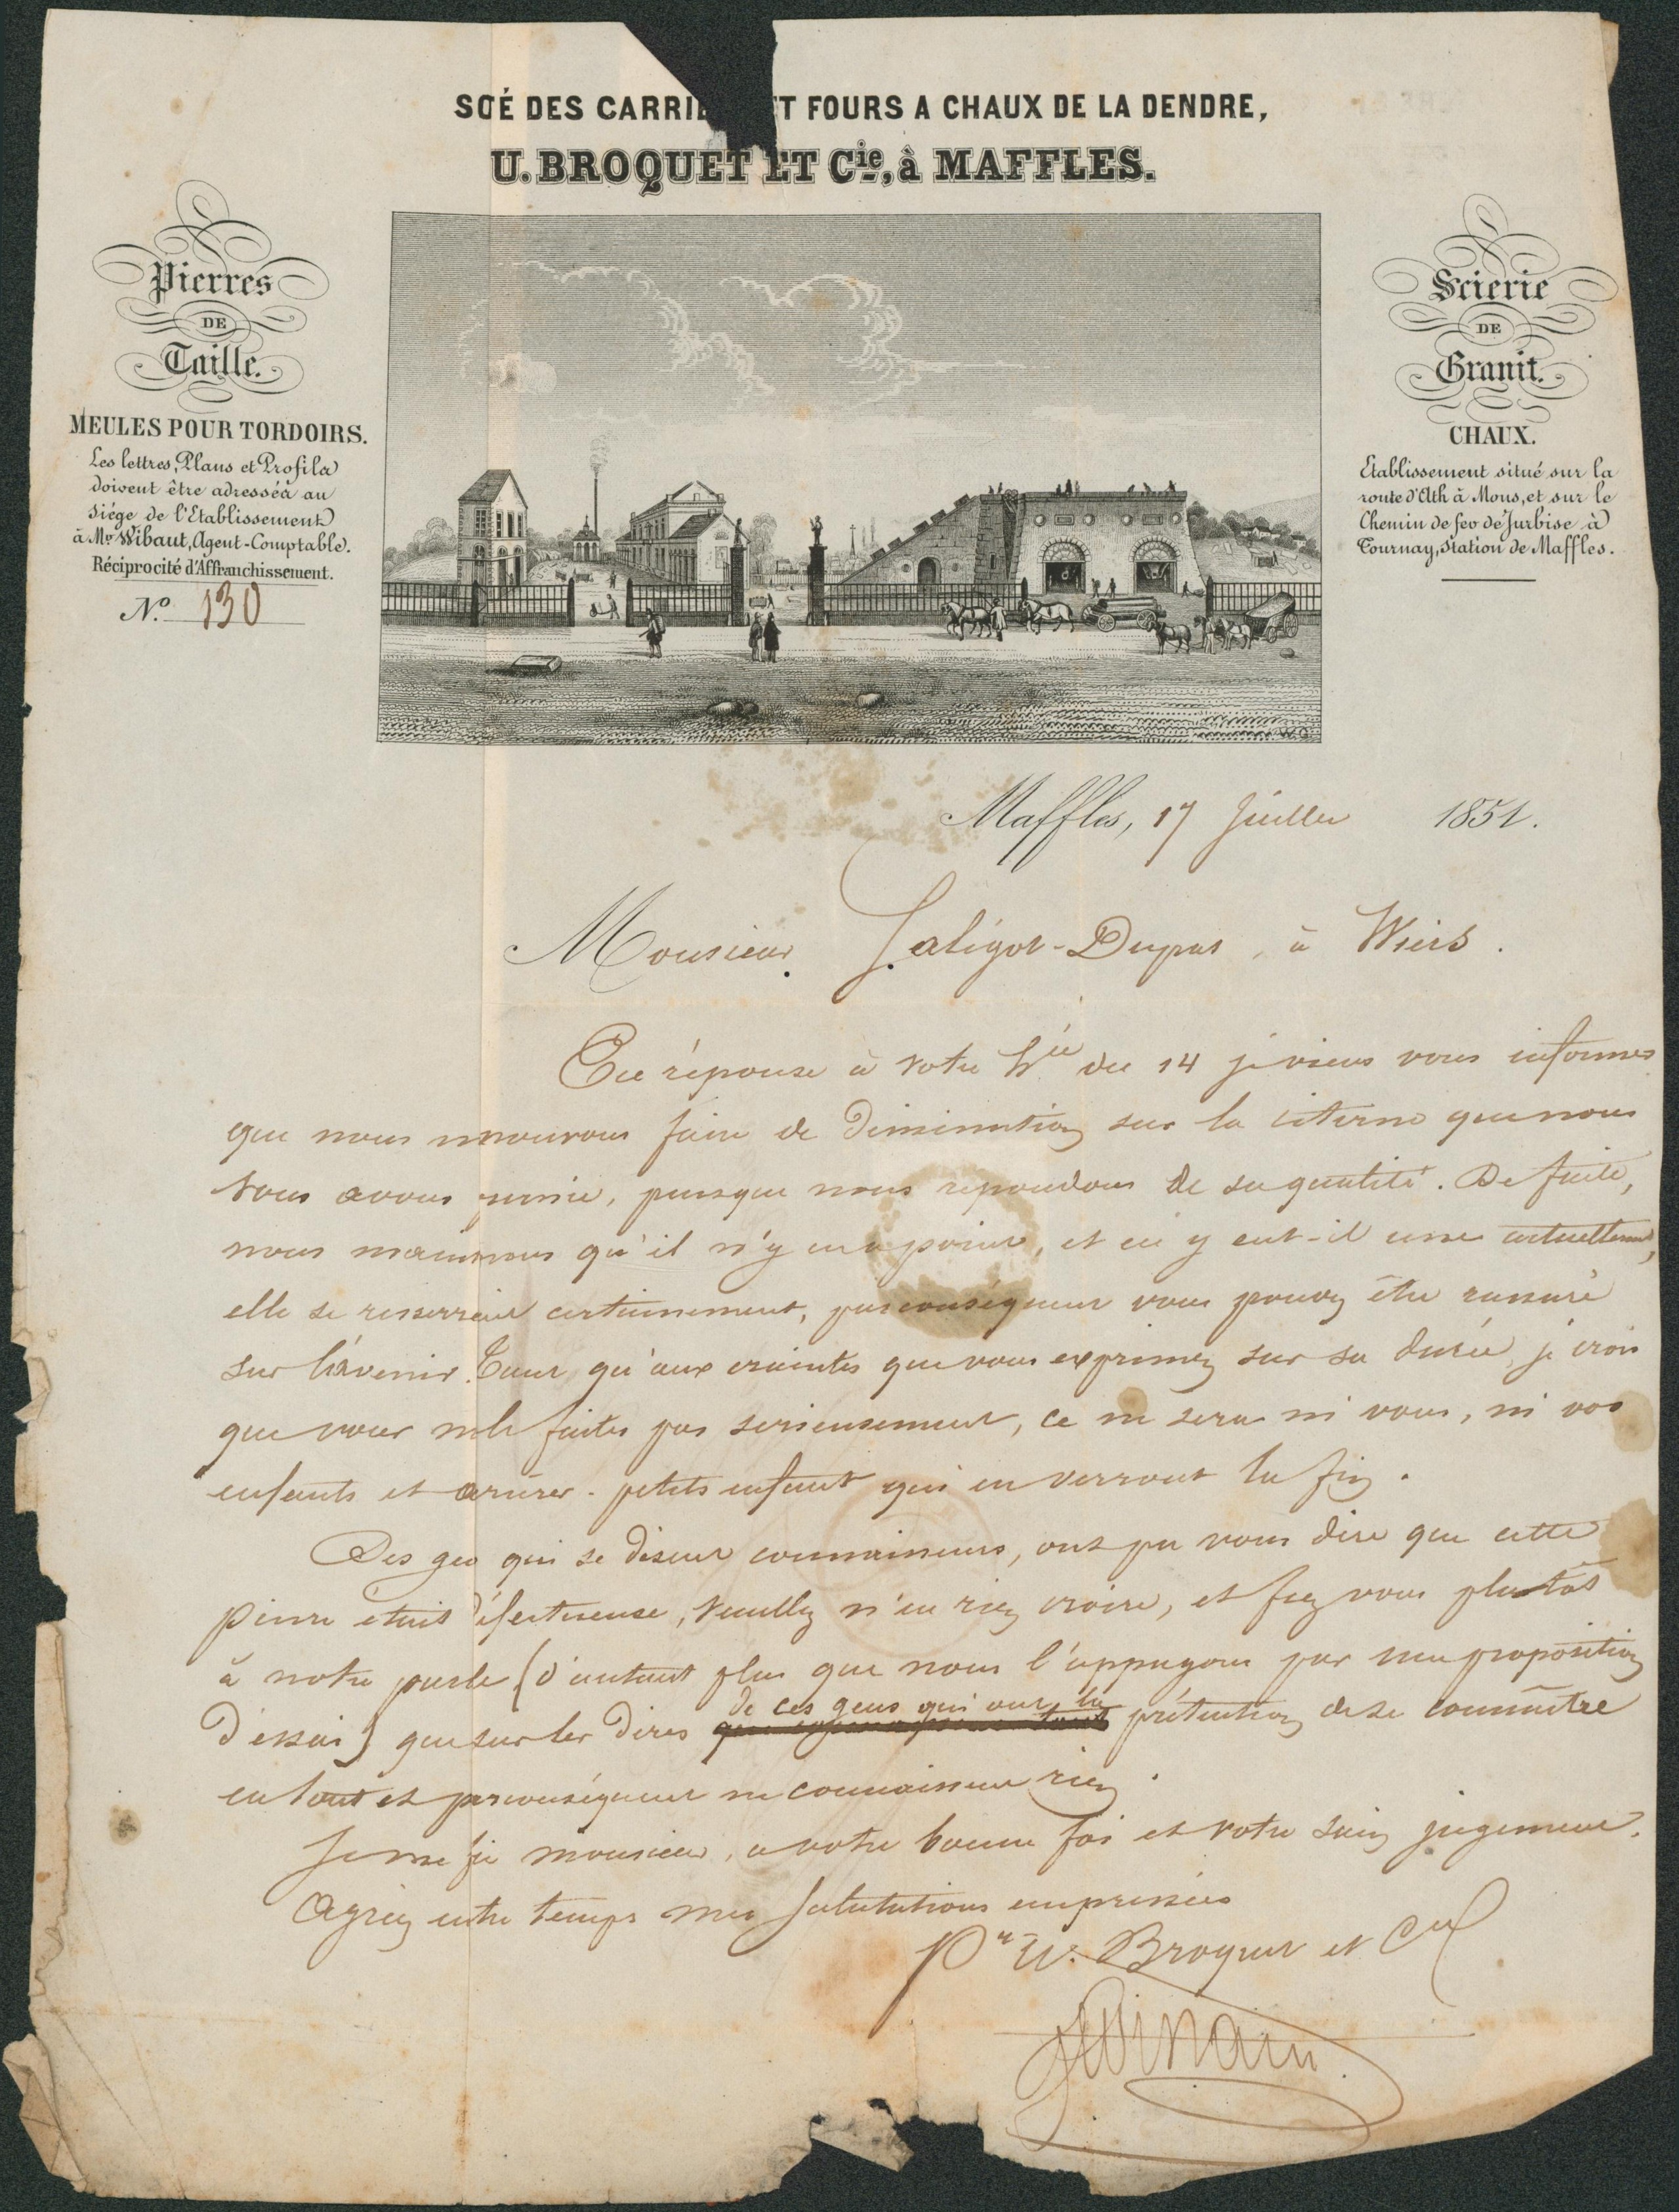 SOÉ DES CARRIE ET FOURS A CHAUX DE LA DENDRE,
U. BROQUET ET Cie, à MAFFLES.
Pierres
DE
Taille.
MEULES POUR TORDOIRS.
Les lettres, Plans et Profils
doivent être adressés au
siége de l'Etablissement
à Mr. Wibaut, Agent-Comptable.
Réciprocité d'Affranchissement.
No. 130
Scierie
DE
Granit.
CHAUX.
Etablissement situé sur la
route d'Ath à Mons, et sur le
Chemin de fer de Jurbise à
Tournay, Station de Maffles.
Maffles, 17 Juillet 1851.
Monsieur Laligot-Dupas, à Wiers.
En réponse à votre du 14 je viens vous informer
que nous ne pouvons faire de diminution sur la citerne que nous
vous avons fournie, puisque nous repondons de sa qualité. De fuite,
nous maintenons qu'il n'y en a point, et en y eut-il une actuellement,
elle se resserrerait certainement, par conséquent vous pouvez être rassuré
sur l'avenir. Quant qu'aux craintes que vous exprimez sur sa durée, je crois
que vous ne le faites pas serieusement, ce ne sera ni vous, ni vos
enfants et arrière-petits enfant qui en verront la fin.
Des gens qui se disent connaisseurs, ont pu vous dire que cette
pierre était défectueuse, veuillez n'en rien croire, et fiez vous plutôt
à notre parole (d'autant plus que nous l'appuyons par une proposition
d'essai) que sur les dires de ces gens qui ont la prétention de se connaître
en tout et par conséquent ne connaissent rien.
Je me fie monsieur, a votre bonne foi et votre sain jugement.
Agréez entre temps mes salutations empressées
Pr U. Broquet et Cie